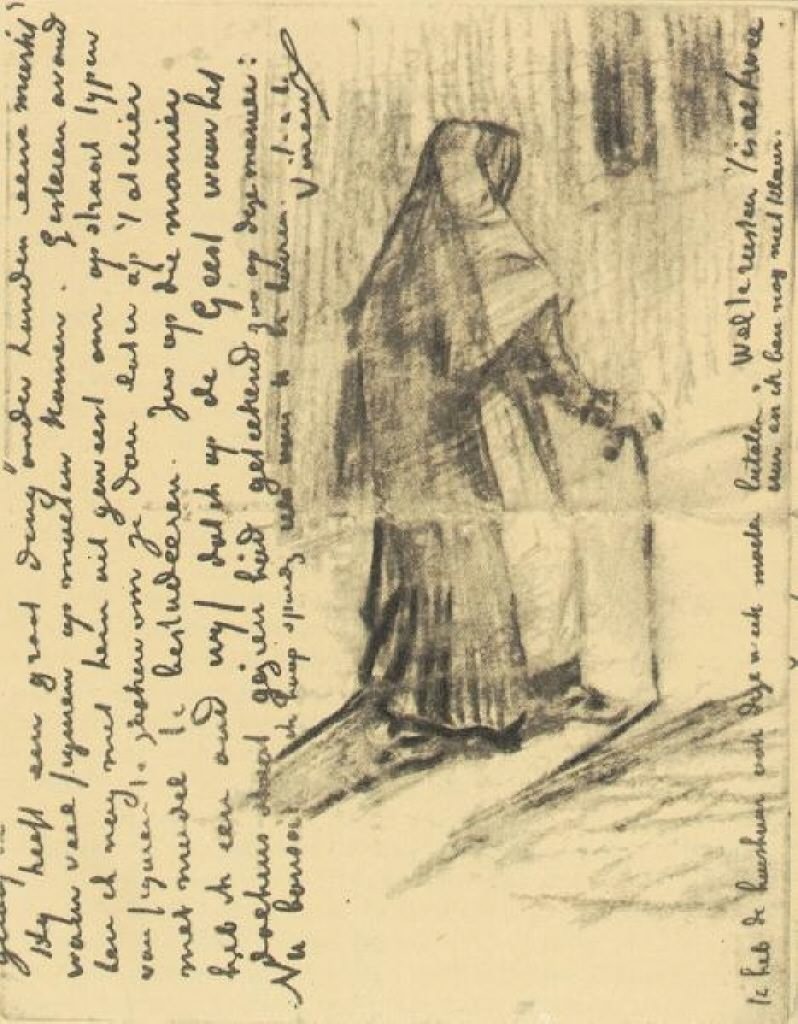 Hij heeft een groot ding onder handen eene
waar veel figuren op moeten komen. Gisteren avond
ben ik nog met hem uit geweest om op straat typen
van figuren te zoeken om ze dan later op 't atelier
met model te bestudeeren. Zoo op die manier
heb ik een oud wijf dat ik op de Geest waar het
dolhuis staat gezien heb geteekend zoo op deze manier:
Nu bonsoir ik hoop spoedig iets van U te hooren. t. à t.
Vincent
Ik heb de huishuur ook deze week moeten betalen. Wel te rusten 't is al twee
uur en ik ben nog niet klaar.